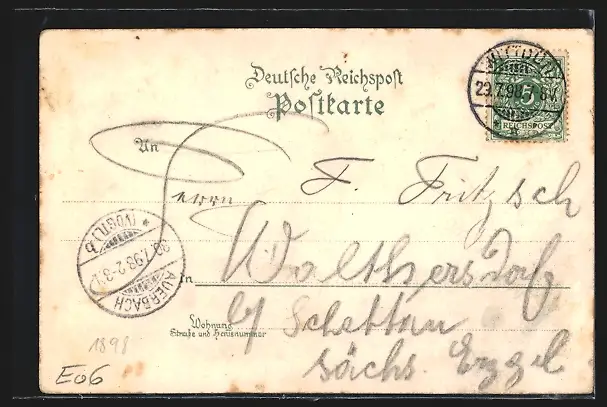 Deutsche Reichspost
Postkarte
29.7.98
5
REICHSPOST
An
Herrn F. Fritzsch
Walthersdorf
in
b/ Schettau
sächs. Erzgeb.
Wohnung
Straße und Hausnummer
AUERBACH
(VOGTL) b
30.7.98.2-3
1898
E06